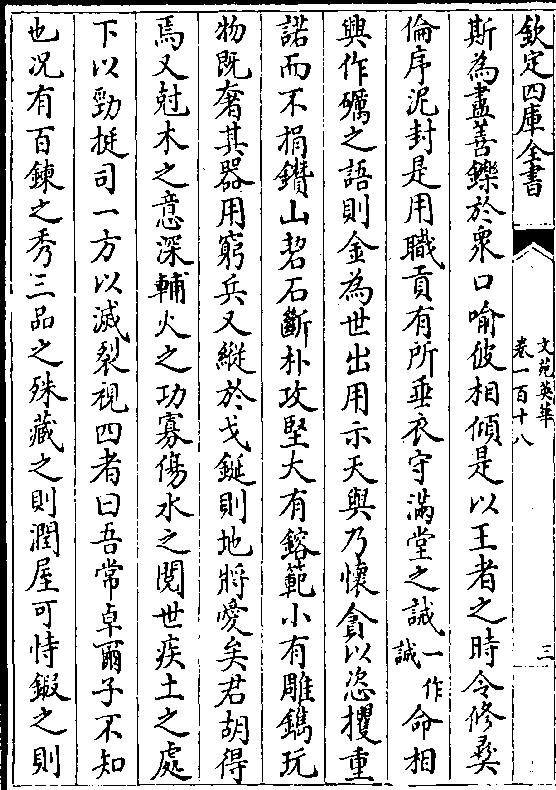 欽定四庫全書
文苑英華
卷一百十八
三
斯為盡善鑠於衆口喻彼相傾是以王者之時令修彛
倫序泥封是用職貢有所垂衣守滿堂之誡一作誠命相
興作礪之語則金為世出用示天與乃懷貪以恣攫重
諾而不捐鑽山㓞石斷朴攻堅大有鎔範小有雕鐫玩
物既奢其器用窮兵又縱於戈鋋則地將愛矣君胡得
焉又尅木之意深輔火之功寡傷水之閱世疾土之處
下以勁挺司一方以滅裂視四者曰吾常卓爾子不知
也况有百鍊之秀三品之殊藏之則潤屋可恃鍜之則